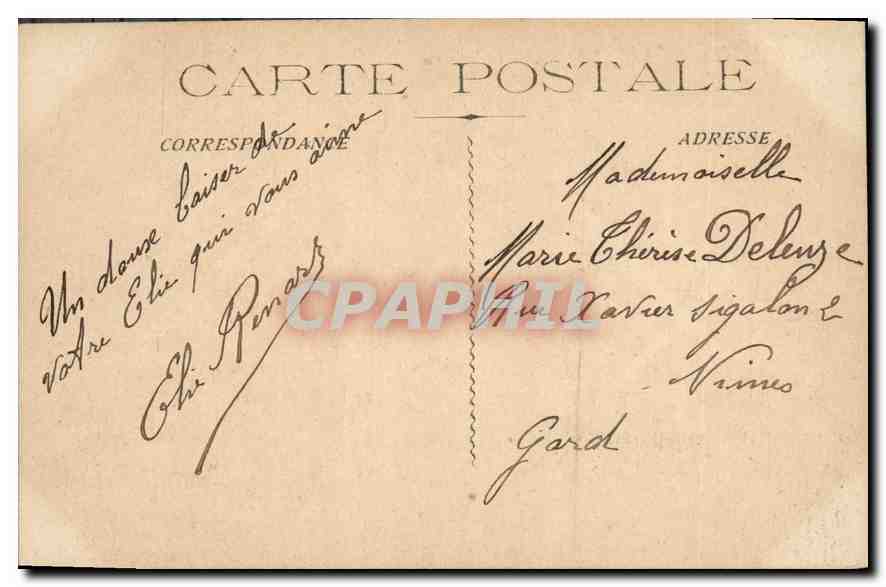 CARTE POSTALE
CORRESPONDANCE
Un douse baiser de
votre Elie qui vous aime
Elie Renard
ADRESSE
Mademoiselle
Marie Thérèse Deleuze
Rue Xavier Sigalon 2
Nimes
Gard
CPAPHIL